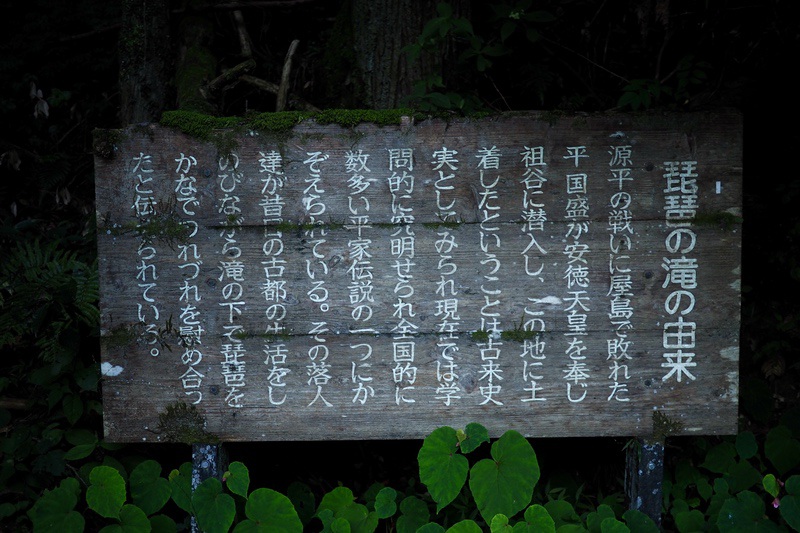 琵琶の滝の由来
源平の戦いに屋島で敗れた
平国盛が安徳天皇を奉じ
祖谷に潜入し、この地に土
着したということは古来史
実としてみられ現在では学
問的に究明せられ全国的に
数多い平家伝説の一つにか
ぞえられている。その落人
達が昔の古都の生活をし
のびながら滝の下で琵琶を
かなでつれづれを慰め合っ
たと伝えられている。